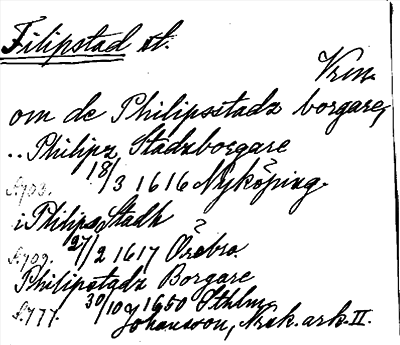 Filipstad st.
Vrm.
om de Philipsstadz borgare,
.. Philipz Stadzborgare
18/3 1616 Nyköping.
s. 703.
i Philips Stadh
27/2 1617 Örebro.
s. 709.
Philipstadz Borgare
30/10 1650 Sthlm
s. 777.
Johansson, Nrak. ark. II.